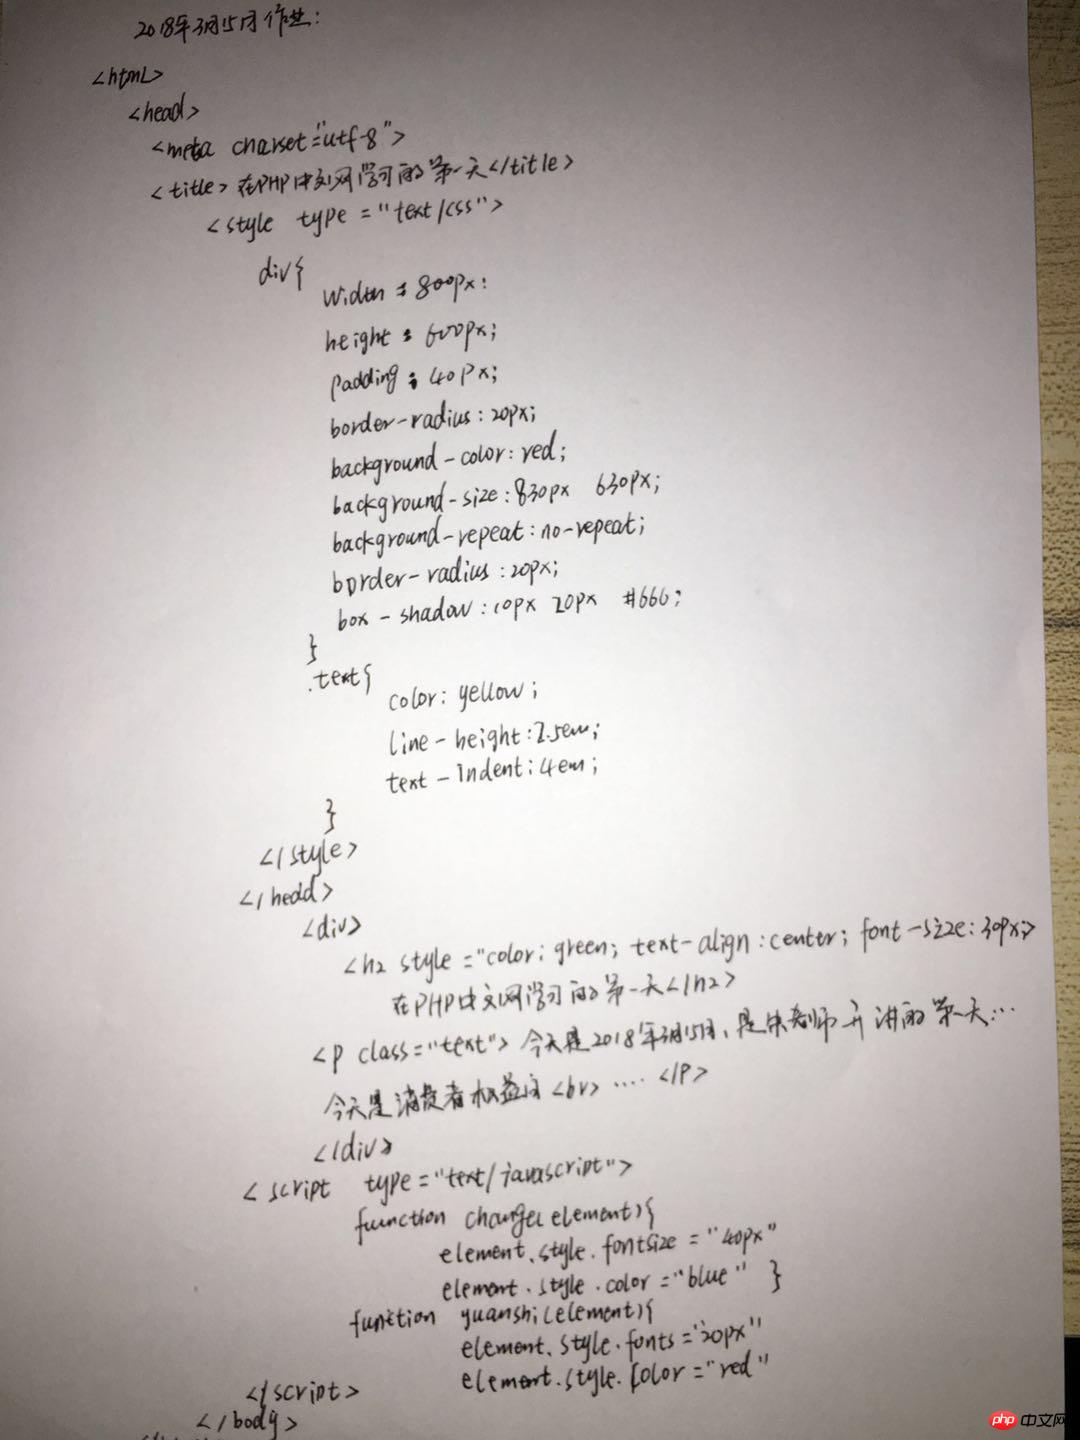 2018年3月15日作业:
<html>
<head>
<meta charset="utf-8">
<title>在PHP中文网学习的第一天</title>
<style type="text/css">
div{
width:800px:
height:600px;
padding:40px;
border-radius:20px;
background-color:red;
background-size:830px 630px;
background-repeat:no-repeat;
border-radius:20px;
box-shadow:10px 20px #666;
}
.text{
color:yellow;
line-height:2.5em;
text-indent:4em;
}
</style>
</head>
<div>
<h2 style="color:green; text-align:center; font-size:30px;>
在PHP中文网学习的第一天</h2>
<p class="text">今天是2018年3月15日,是朱老师开讲的第一天...
今天是消费者权益日<br>....</p>
</div>
<script type="text/javascript">
function change(element){
element.style.fontsize="40px"
element.style.color="blue" }
function yuanshi(element){
element.style.fonts="20px"
element.style.color="red"
</script>
</body>
php 中文网